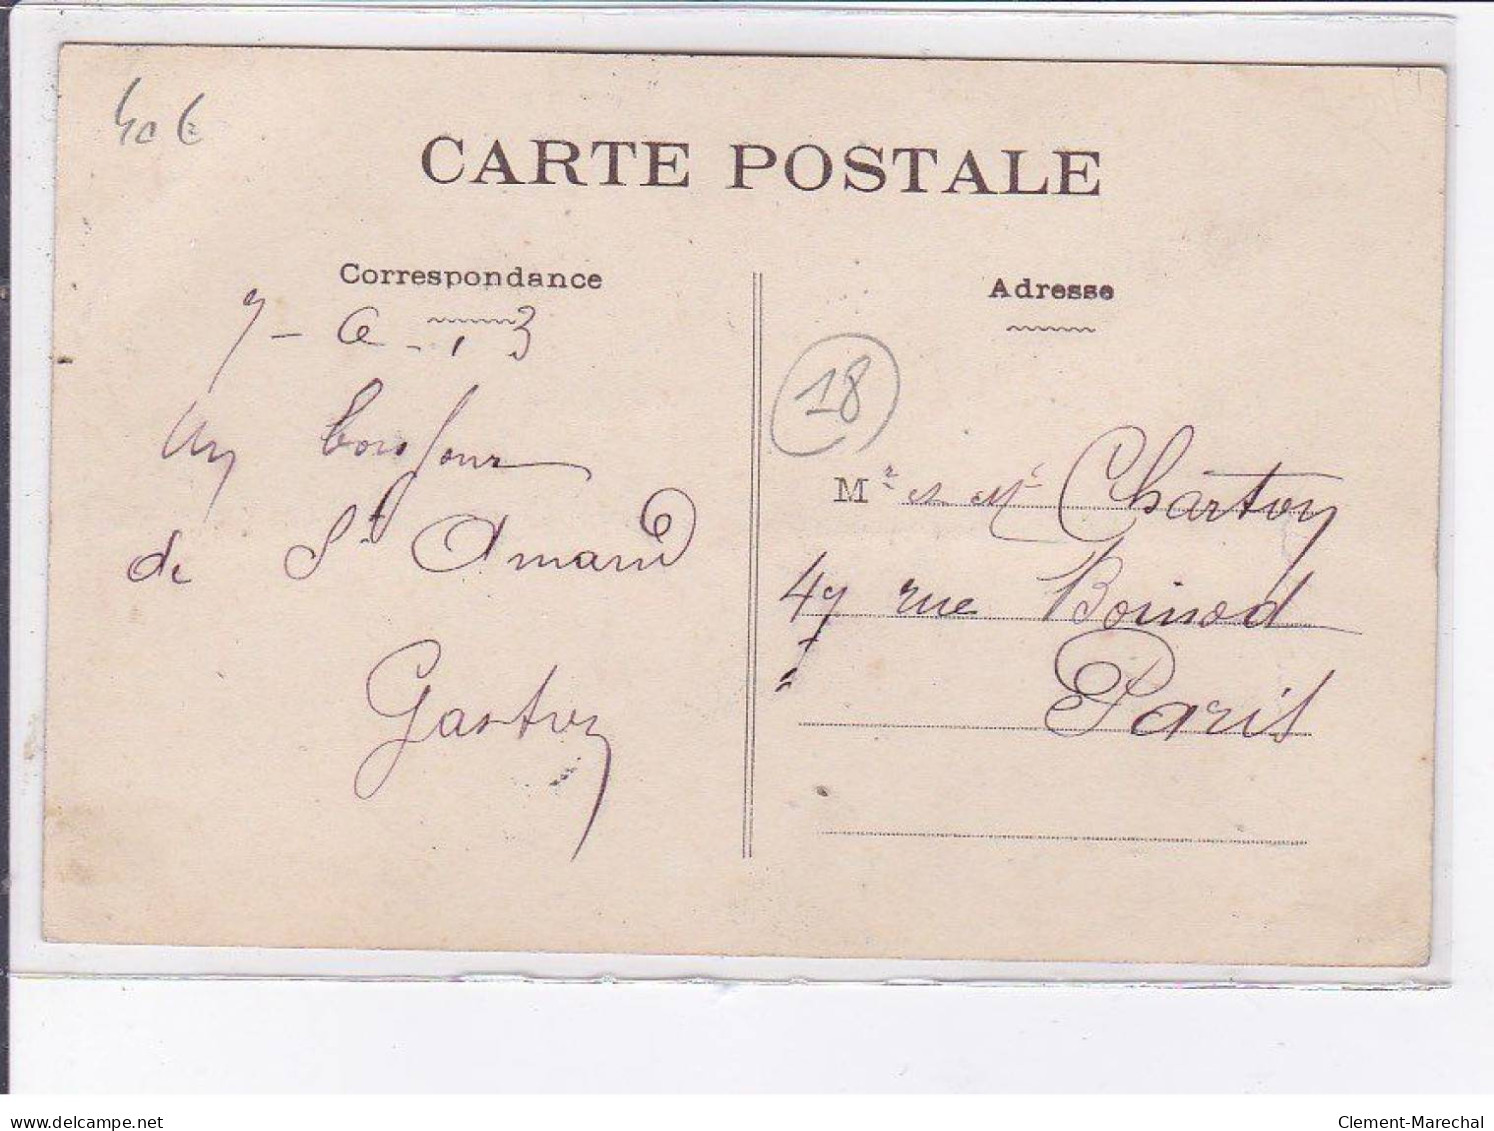 40 €
CARTE POSTALE
Correspondance
Adresse
7 - 6 - 13
18
Un bonjour
de St Amand
Gaston
Mr et Me Charton
47 rue Boinod
Paris
delcampe.net
Clement-Marechal